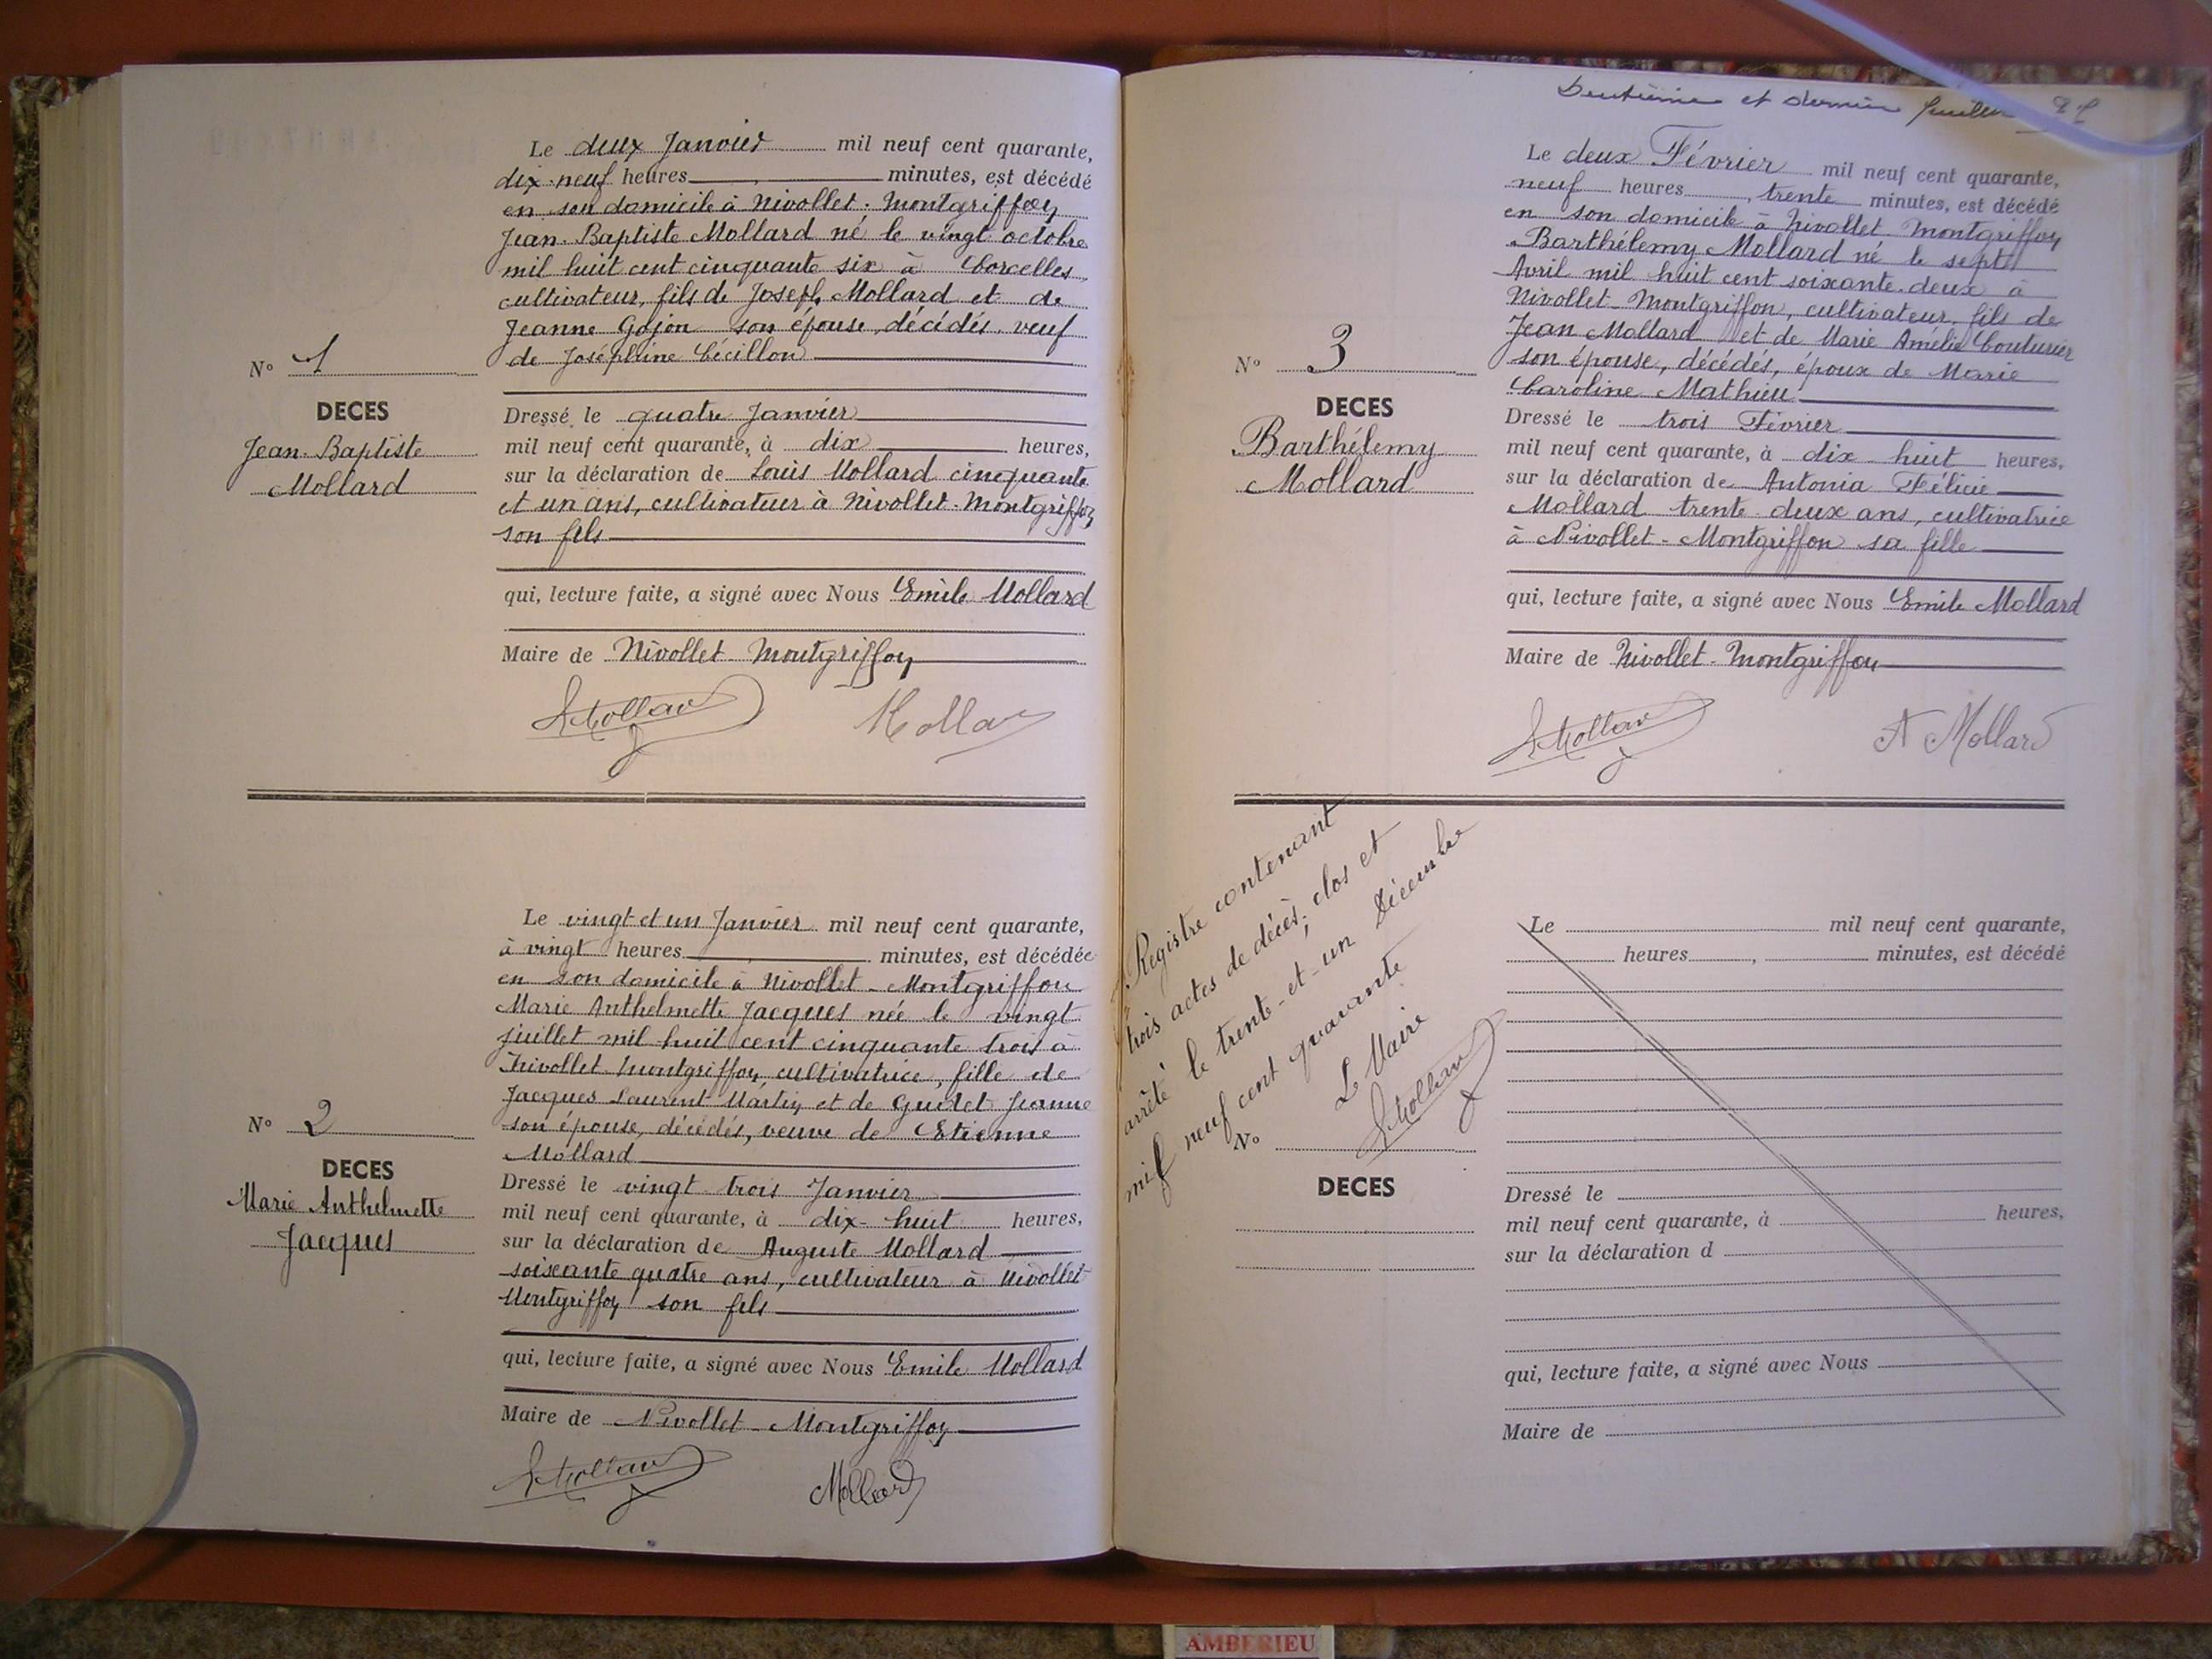 Le deux Janvier mil neuf cent quarante,
dix-neuf heures, minutes, est décédé
en son domicile à Nivollet-Montgriffon
Jean-Baptiste Mollard né le vingt octobre
mil huit cent cinquante six à Corcelles
cultivateur, fils de Joseph Mollard et de
Jeanne Gojon son épouse, décédés, veuf
de Joséphine Cécillon
N° 1
DECES
Jean-Baptiste
Mollard
Dressé le quatre Janvier
mil neuf cent quarante, à dix heures,
sur la déclaration de Louis Mollard cinquante
et un ans, cultivateur à Nivollet-Montgriffon
son fils
qui, lecture faite, a signé avec Nous Emile Mollard
Maire de Nivollet-Montgriffon
Mollar
Le vingt et un Janvier mil neuf cent quarante,
à vingt heures, minutes, est décédée
en son domicile à Nivollet-Montgriffon
Marie Anthelmette Jacques née le vingt
juillet mil huit cent cinquante trois à
Nivollet-Montgriffon, cultivatrice, fille de
Jacques Laurent Martin et de Jeanne
son épouse, décédés, veuve de Etienne
Mollard
N° 2
DECES
Marie Anthelmette
Jacques
Dressé le vingt trois Janvier
mil neuf cent quarante, à dix-huit heures,
sur la déclaration de Auguste Mollard
soixante quatre ans, cultivateur à Nivollet
Montgriffon son fils
qui, lecture faite, a signé avec Nous Emile Mollard
Maire de Nivollet-Montgriffon
Mollard
Deuxième et dernier feuillet
Le deux Février mil neuf cent quarante,
neuf heures, trente minutes, est décédé
en son domicile à Nivollet-Montgriffon
Barthélemy Mollard né le sept
Avril mil huit cent soixante-deux à
Nivollet-Montgriffon, cultivateur, fils de
Jean Mollard et de Marie Amélie Couturier
son épouse, décédés, époux de Marie
Caroline Mathieu
N° 3
DECES
Barthélemy
Mollard
Dressé le trois Février
mil neuf cent quarante, à dix-huit heures,
sur la déclaration de Antonia Félicie
Mollard trente-deux ans, cultivatrice
à Nivollet-Montgriffon sa fille
qui, lecture faite, a signé avec Nous Emile Mollard
Maire de Nivollet-Montgriffon
A Mollard
Registre contenant
trois actes de décès, clos et
arrêté le trente-et-un Décembre
mil neuf cent quarante
Le Maire
N°
DECES
Le mil neuf cent quarante,
heures, minutes, est décédé
Dressé le
mil neuf cent quarante, à heures,
sur la déclaration d
qui, lecture faite, a signé avec Nous
Maire de
AMBERIEU